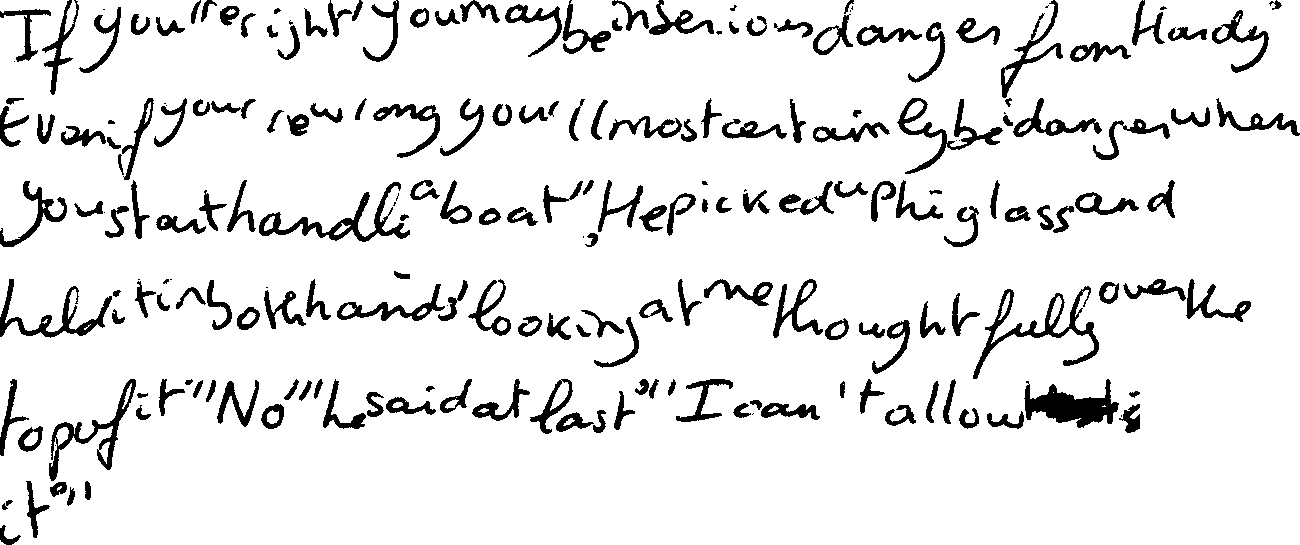 If you're right you may be in serious danger from Hardy.
Even if you're wrong you'll most certainly be i danger when
you start handli a boat", He picked up hi glass and
held it in both hands' looking at me thoughtfully over the
top of it "No" he said at last." I can't allow
it."